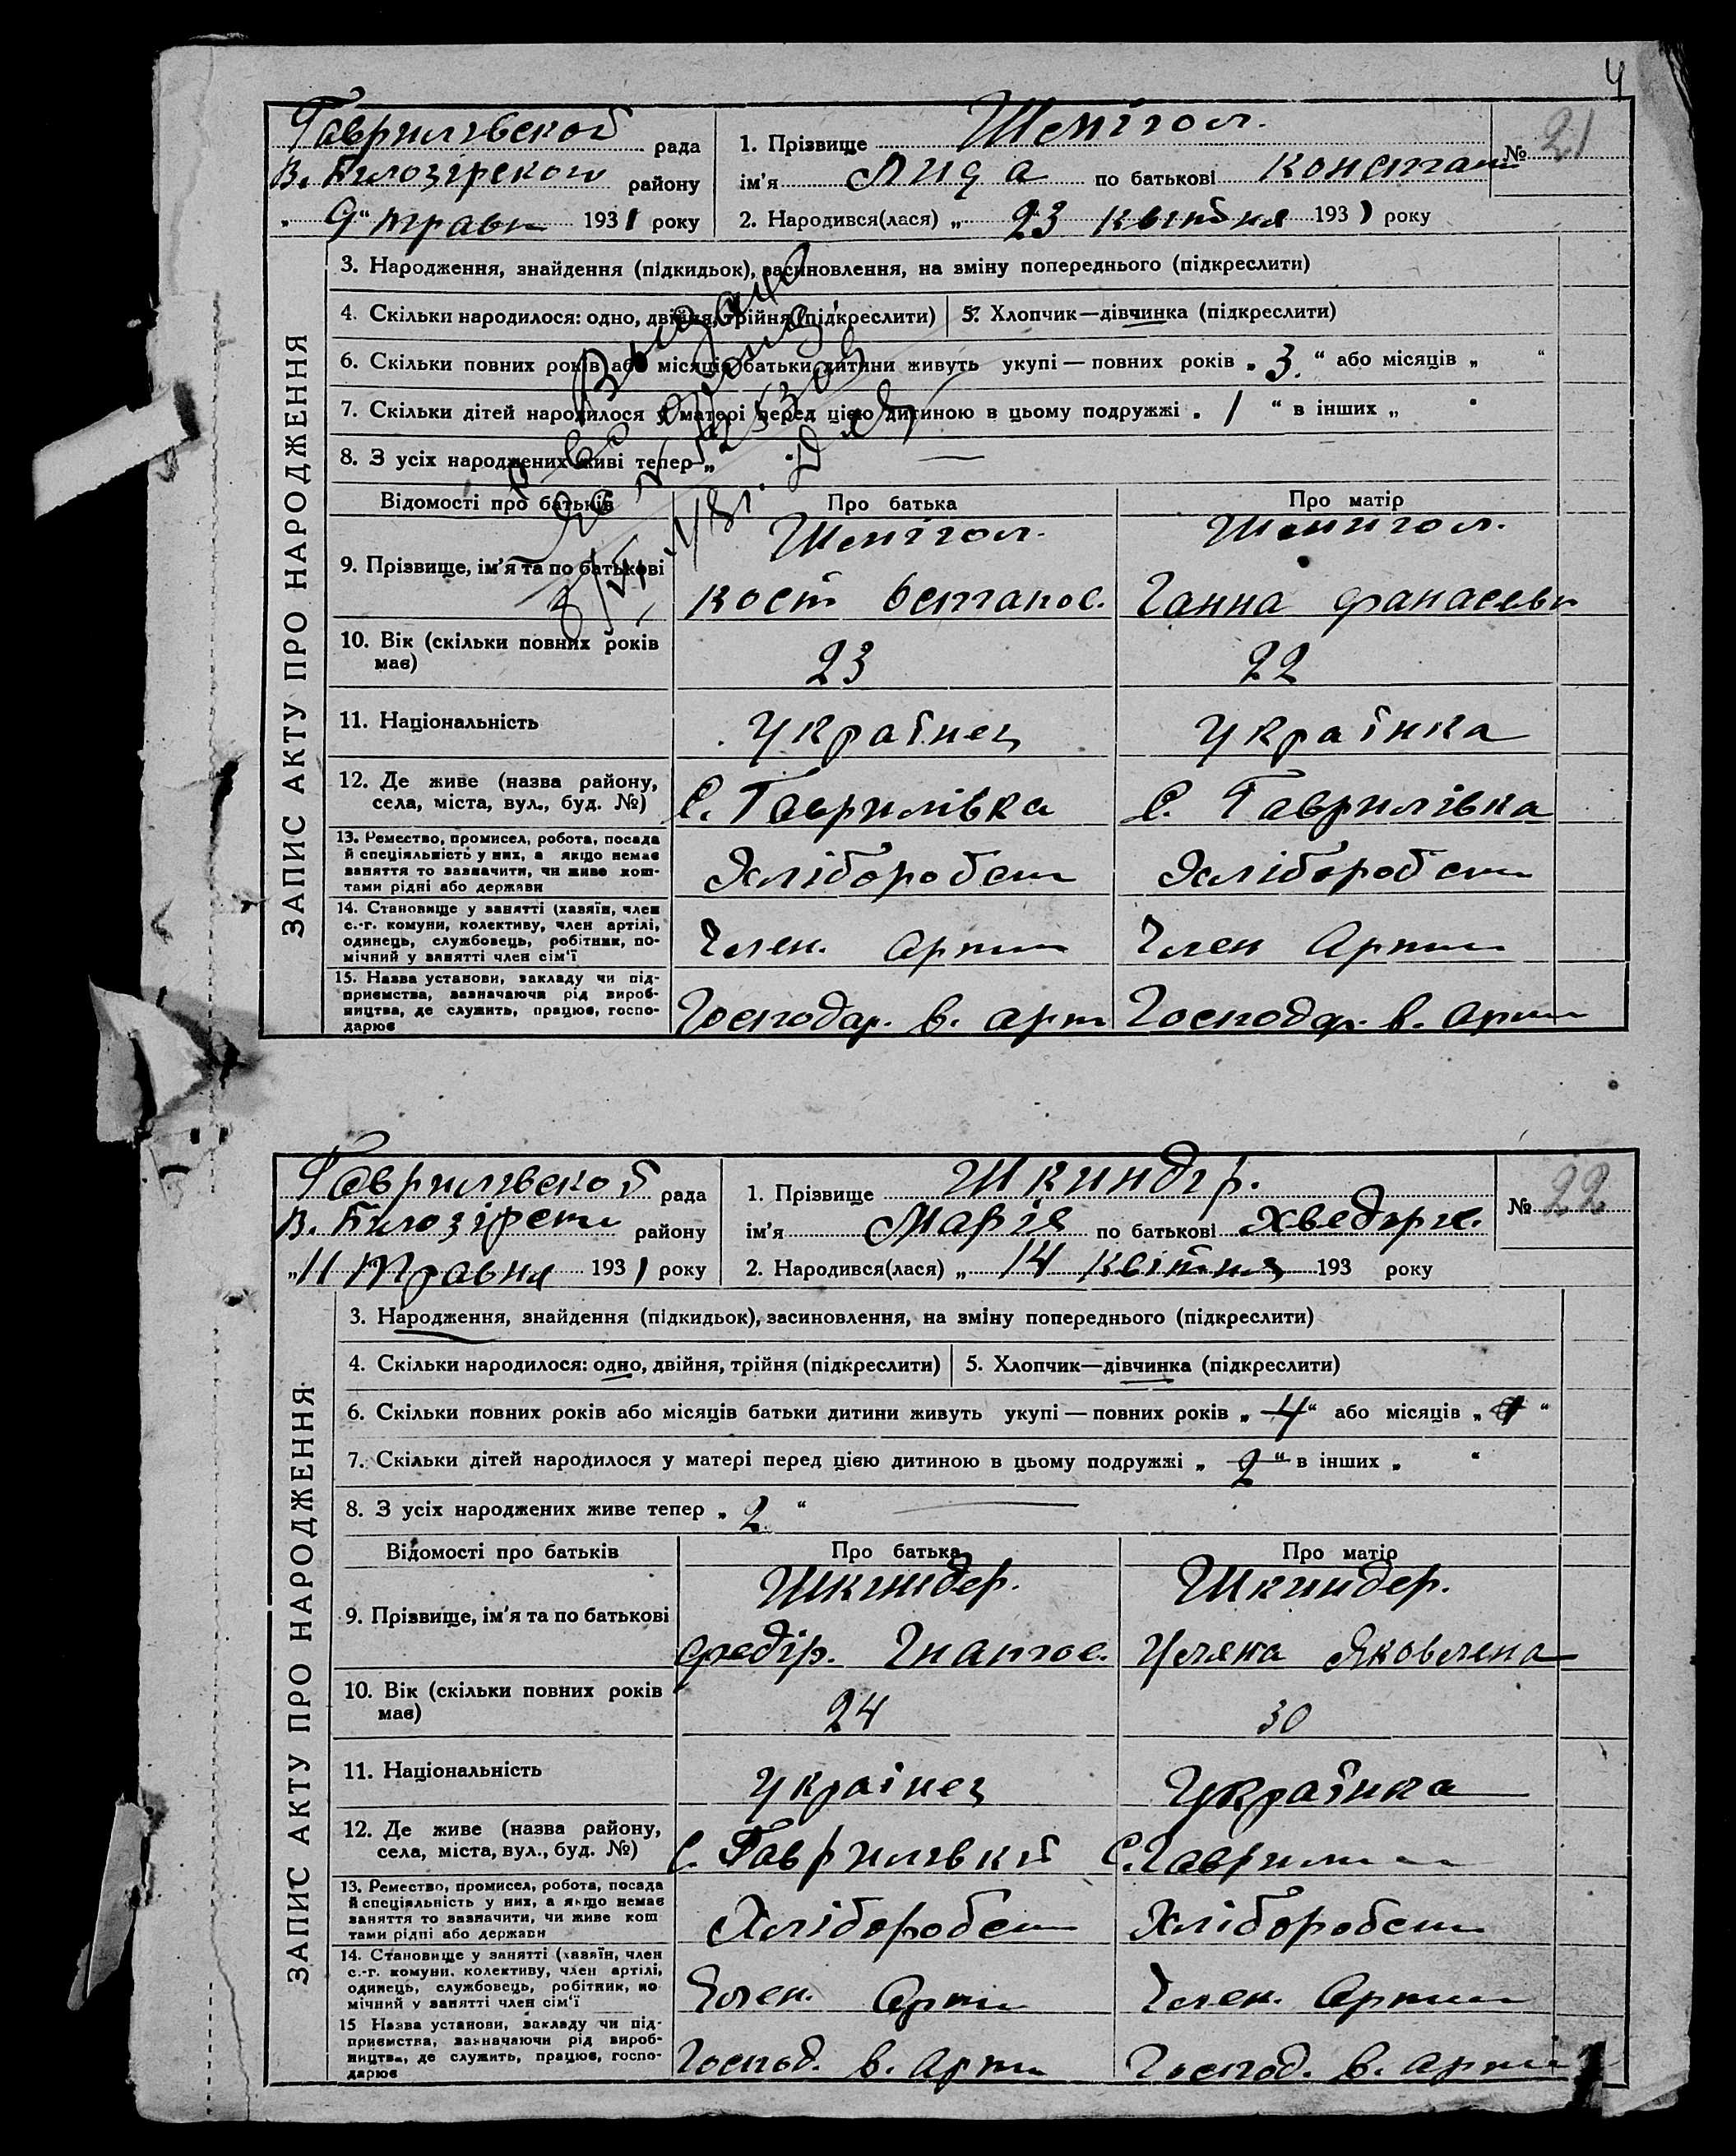 4
Гаврилівской рада
В. Білозірского району
„ 9 “ травн 1931 року
1. Прізвище Шепігол.
ім'я Лида по батькові Констант
2. Народився(лася) „ 23 квітня 1931 року
№ 21
ЗАПИС АКТУ ПРО НАРОДЖЕННЯ
3. Народження, знайдення (підкидьок), засиновлення, на зміну попереднього (підкреслити)
4. Скільки народилося: одно, двійня, трійня (підкреслити)
5. Хлопчик—дівчинка (підкреслити)
6. Скільки повних років або місяців батьки дитини живуть укупі — повних років „ 3. “ або місяців „ “
7. Скільки дітей народилося у матері перед цією дитиною в цьому подружжі „ 1 “ в інших „ “
8. З усіх народжених живі тепер „ —
Відомості про батьків
Про батька
Про матір
9. Прізвище, ім'я та по батькові
Шепігол.
Кост Остапос.
Шепигол.
Ганна Фанасевн
10. Вік (скільки повних років
має)
23
22
11. Національність
Українец
Українка
12. Де живе (назва району,
села, міста, вул., буд. №)
С. Гаврилівка
С. Гаврилівка
13. Ремество, промисел, робота, посада
й спеціяльність у них, а якщо немає
заняття то зазначити, чи живе кош-
тами рідні або держави
Хлібороб
Хлібороб
14. Становище у занятті (хазяїн, член
с.-г. комуни, колективу, член артілі,
одинець, службовець, робітник, по-
мічний у занятті член сім'ї
Член. Арт
Член Арт
15. Назва установи, закладу чи під-
приємства, зазначаючи рід вироб-
ництва, де служить, працює, госпо-
дарює
Господар. в. арт
Господар. в. арт
Гаврилівской рада
В. Білозірск району
„ 11 Травня 1931 року
1. Прізвище Шкиндір.
ім'я Марія по батькові Хведорис.
2. Народився(лася) „ 14 Квітня 193 року
№ 22
ЗАПИС АКТУ ПРО НАРОДЖЕННЯ
3. Народження, знайдення (підкидьок), засиновлення, на зміну попереднього (підкреслити)
4. Скільки народилося: одно, двійня, трійня (підкреслити)
5. Хлопчик—дівчинка (підкреслити)
6. Скільки повних років або місяців батьки дитини живуть укупі — повних років „ 4 “ або місяців „ “
7. Скільки дітей народилося у матері перед цією дитиною в цьому подружжі „ 2 “ в інших „ “
8. З усіх народжених живе тепер „ 2 “ —
Відомості про батьків
Про батька
Про матір
9. Прізвище, ім'я та по батькові
Шкиндер.
Федір. Гнатос.
Шкиндер.
Уляна Яковлена
10. Вік (скільки повних років
має)
24
30
11. Національність
Украінец
Українка
12. Де живе (назва району,
села, міста, вул., буд. №)
С. Гаврилівкі
С. Гаврил
13. Ремество, промисел, робота, посада
й спеціяльність у них, а якщо немає
заняття то зазначити, чи живе кош
тами рідні або держави
Хлібороб
Хлібороб
14. Становище у занятті (хазяїн, член
с.-г. комуни, колективу, член артілі,
одинець, службовець, робітник, по
мічний у занятті член сім'ї
Член. Арт
Член. Арт
15 Назва установи, закладу чи під-
приємства, зазначаючи рід вироб-
ництва, де служить, працює, госпо-
дарює
Господ. в. арт
Господ. в. арт